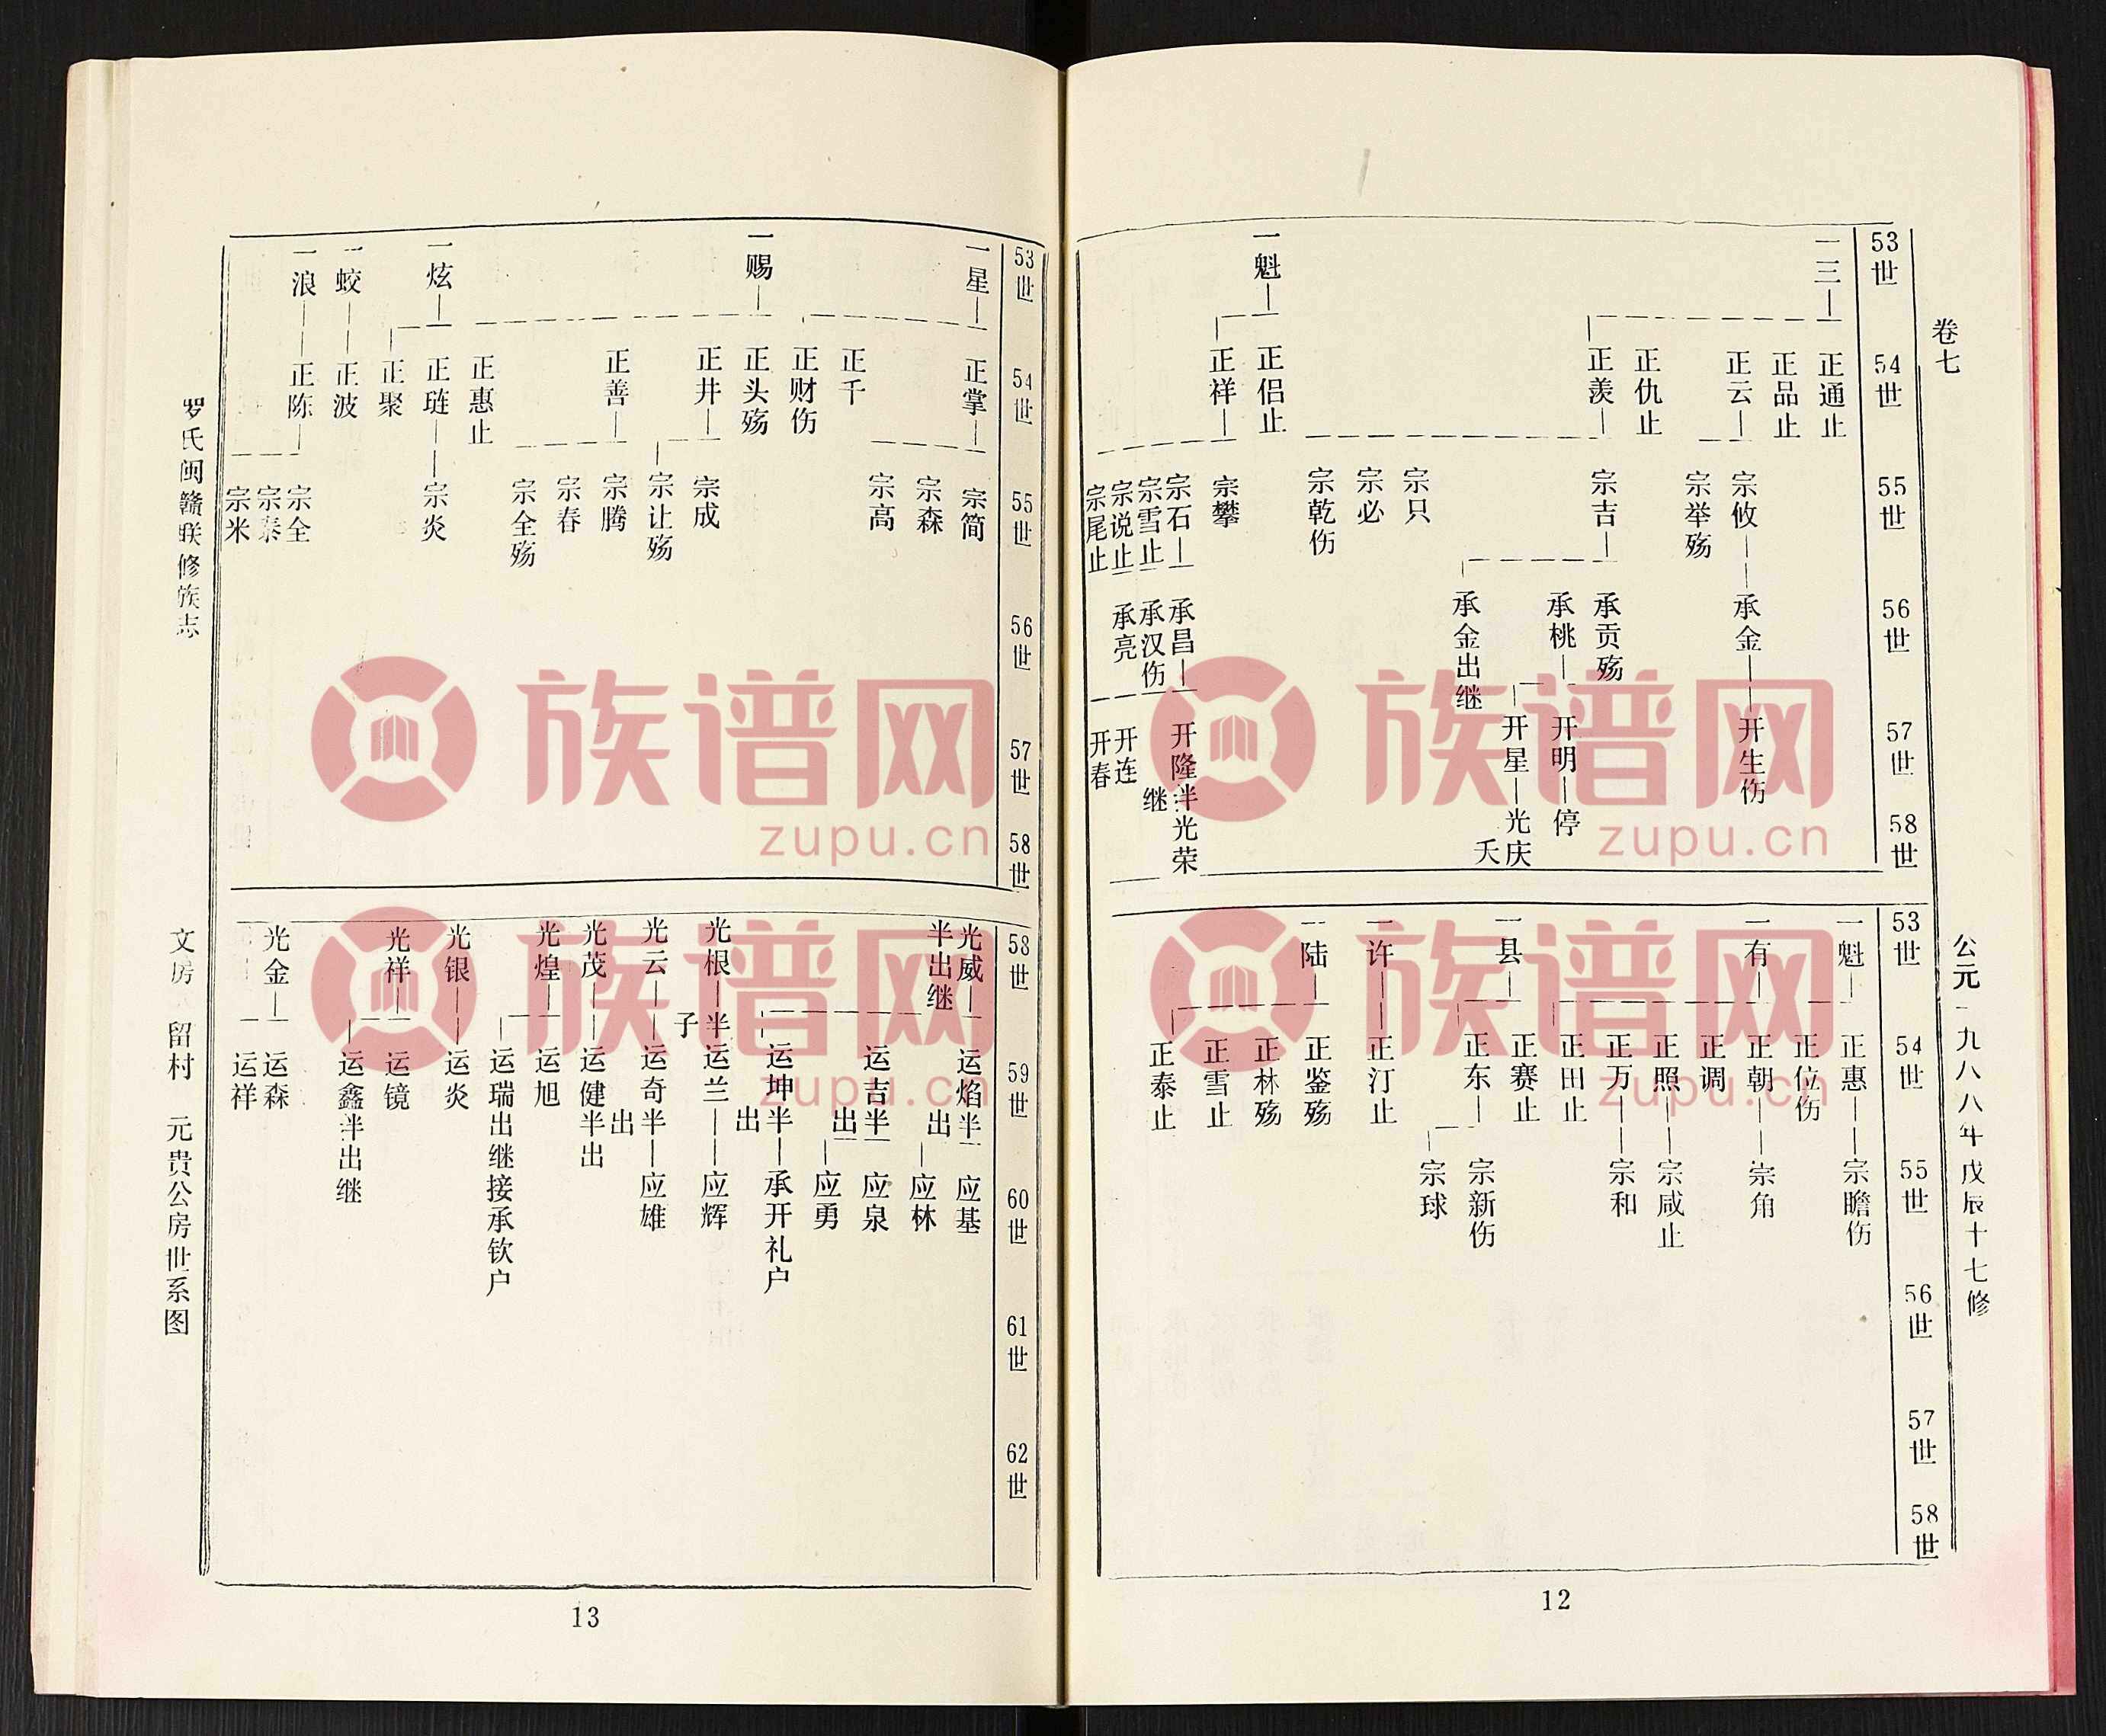 卷七
公元一九八八年戊辰十七修
53世
54世
55世
56世
57世
58世
一三
正通止
正品止
正云
正仇止
正羡
宗攸
宗举殇
宗吉
宗只
宗必
宗乾伤
承金
承贡殇
承桃
承金出继
开生伤
开明
停
开星
光庆
夭
一魁
正侣止
正祥
宗攀
宗石
宗雪止
宗说止
宗尾止
承昌
承汉伤
承亮
开隆半
继
光荣
开连
开春
53世
54世
55世
56世
57世
58世
一魁
正惠
正位伤
宗瞻伤
一有
正朝
正调
正照
正万
正田止
宗角
宗咸止
宗和
一县
正赛止
正东
宗新伤
宗球
一许
正汀止
一陆
正鉴殇
正林殇
正雪止
正泰止
12
53世
54世
55世
56世
57世
58世
一星
正掌
正千
正财伤
宗简
宗森
宗高
一赐
正头殇
正井
正善
正惠止
宗成
宗让殇
宗腾
宗春
宗全殇
一炫
正琏
正聚
宗炎
一蛟
正波
一浪
正陈
宗全
宗泰
宗米
58世
59世
60世
61世
62世
光威
半出继
运焰半
出
运吉半
出
运坤半
出
应基
应林
应泉
应勇
承开礼户
光根
半
子
运兰
应辉
光云
运奇半
出
应雄
光茂
运健半出
光煌
运旭
运瑞出继接承钦户
光银
运炎
光祥
运镜
运鑫半出继
光金
运森
运祥
罗氏闽赣联修族志
文房
留村
元贵公房世系图
13
族谱网
zupu.cn
族谱网
zupu.cn
族谱网
zupu.cn
族谱网
zupu.cn